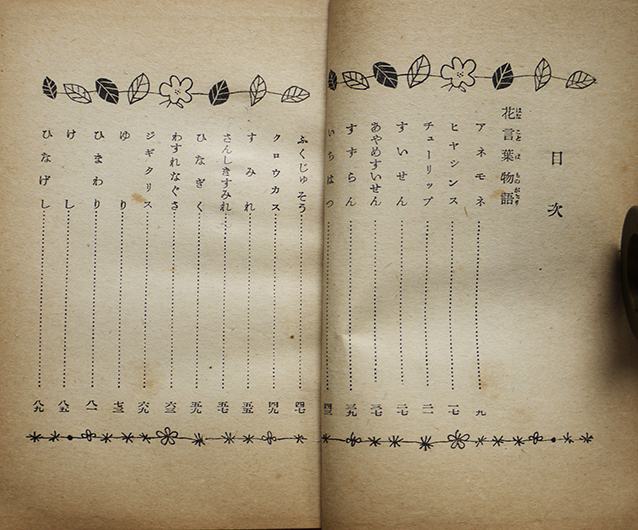 目次
花言葉物語
アネモネ……九
ヒヤシンス……一七
チューリップ……二一
すいせん……二七
あやめすいせん……三七
すずらん……三九
いちはつ……四三
ふくじゅそう……四七
クロウカス……四九
すみれ……五五
さんしきすみれ……五七
ひなぎく……五九
わすれなぐさ……六三
ジギタリス……六九
ゆり……七三
ひまわり……八一
けし……八五
ひなげし……八九